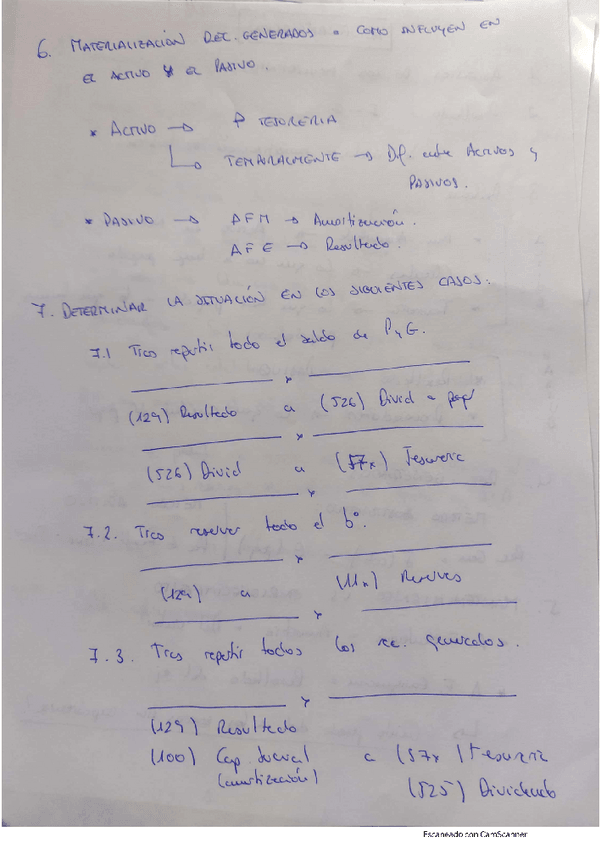 6. MATERIALIZACIÓN REC. GENERADOS. COMO INFLUYEN EN
EL ACTIVO Y EL PASIVO.
* ACTIVO → ↑ TESORERIA
↳ TEMPORALMENTE → Dif. entre ACTIVOS y
PASIVOS.
* PASIVO → AFM → Amortización.
AFE → Resultado.
7. DETERMINAR LA SITUACIÓN EN LOS SIGUIENTES CASOS:
7.1 Tras repartir todo el saldo de PyG.
x
(129) Resultado a (526) Divid a pag
x
(526) Divid a (57x) Tesoreria
x
7.2. Tras reservar todo el bº.
x
(129) a (11x) Reservas
x
7.3. Tras repartir todos los rec. generados.
x
(129) Resultado
(100) Cap. Social a (57x) Tesoreria
(amortización) (525) Dividendo
Escaneado con CamScanner